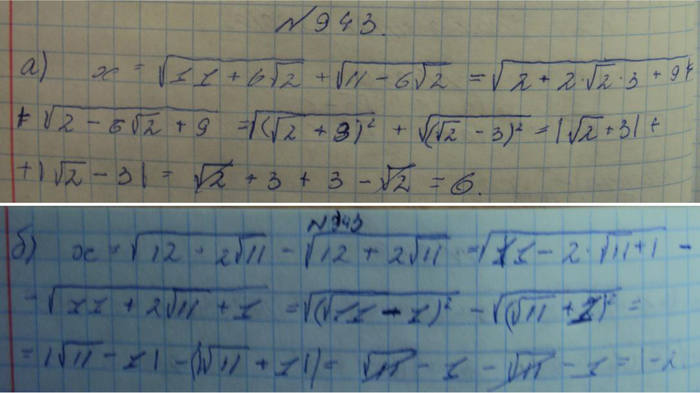 №943.
а) x = √(11 + 6√2) + √(11 - 6√2) = √(2 + 2·√2·3 + 9) +
+ √(2 - 6√2 + 9) = √((√2 + 3)²) + √((√2 - 3)²) = |√2 + 3| +
+ |√2 - 3| = √2 + 3 + 3 - √2 = 6.
№943
б) x = √(12 - 2√11) - √(12 + 2√11) = √(11 - 2·√11 + 1) -
- √(11 + 2√11 + 1) = √((√11 - 1)²) - √((√11 + 1)²) =
= |√11 - 1| - (|√11 + 1|) = √11 - 1 - √11 - 1 = -2